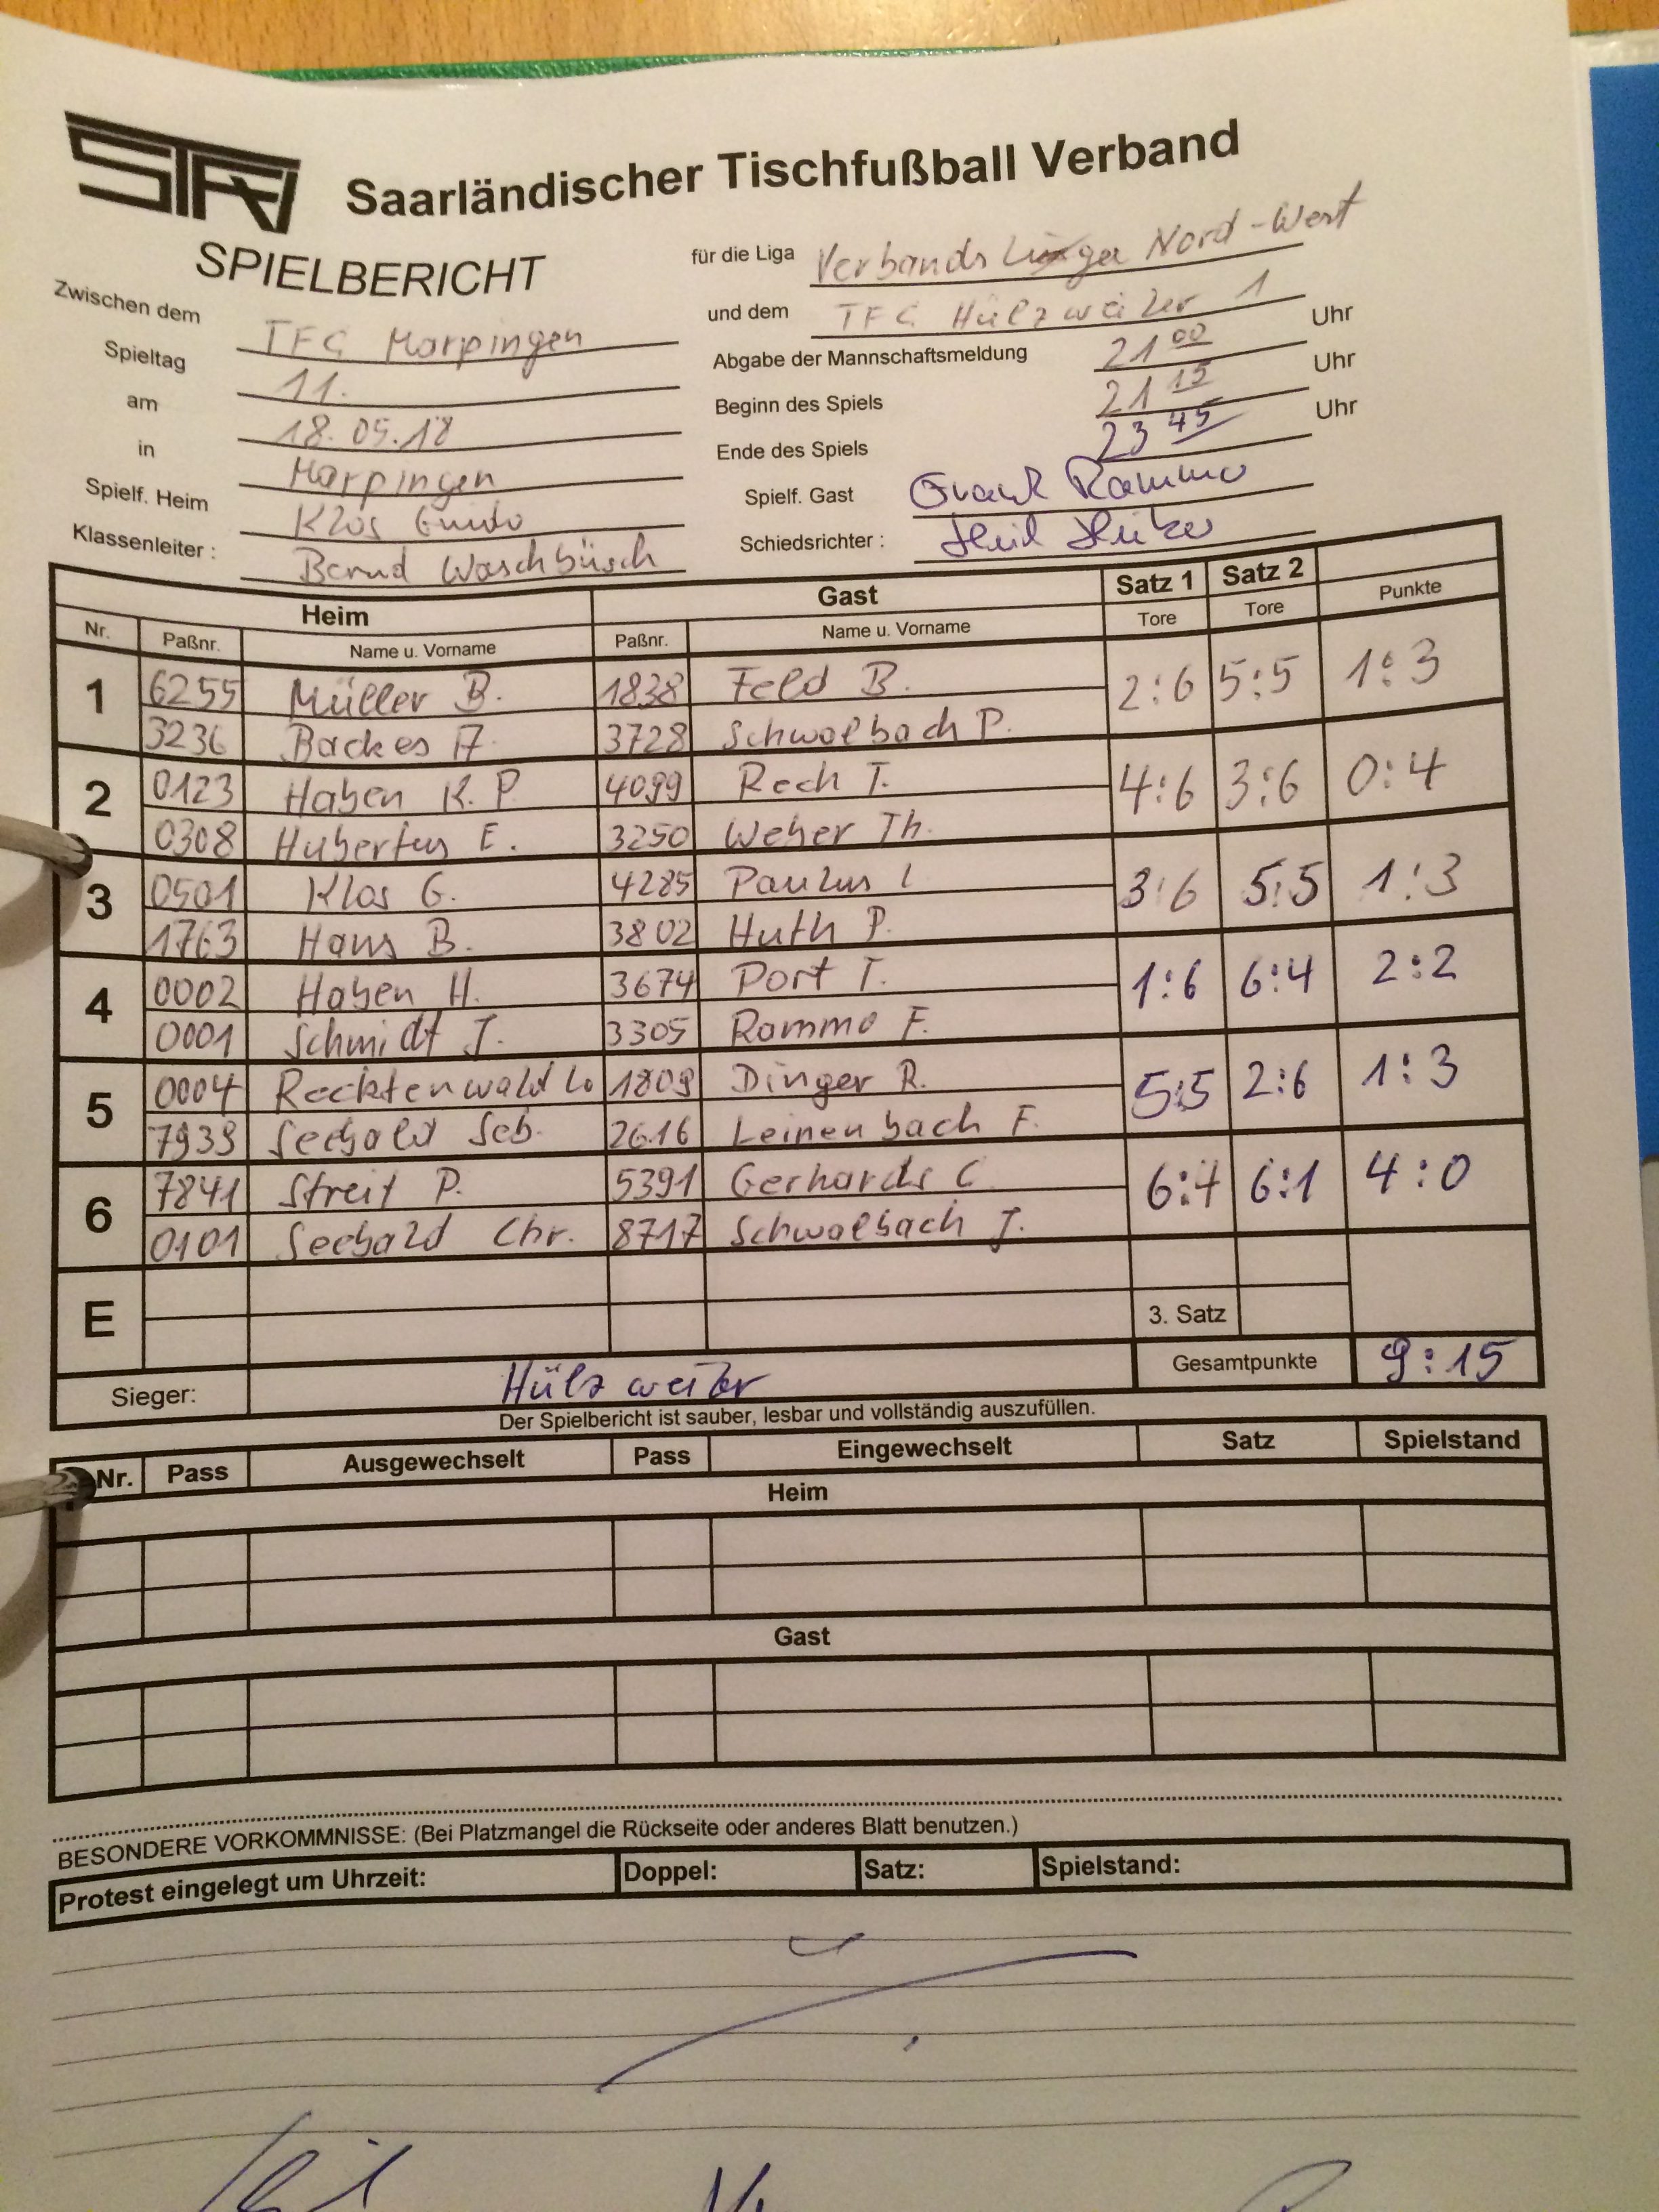 STFV Saarländischer Tischfußball Verband
SPIELBERICHT
für die Liga Verbands Liga Nord-West
Zwischen dem TFC Marpingen
und dem TFC Hülzweiler 1
Spieltag 11.
Abgabe der Mannschaftsmeldung 21 00 Uhr
am 18.05.18
Beginn des Spiels 21 15 Uhr
in Marpingen
Ende des Spiels 23 45 Uhr
Spielf. Heim Klos Guido
Spielf. Gast Frank Rammo
Klassenleiter : Bernd Waschbüsch
Schiedsrichter :
Heim Gast Satz 1 Satz 2
Nr. Paßnr. Name u. Vorname Paßnr. Name u. Vorname Tore Tore Punkte
1 6255 Müller B. 1838 Feld B. 2:6 5:5 1:3
3236 Backes A. 3728 Schwalbach P.
2 0123 Haben K. P 4099 Rech T. 4:6 3:6 0:4
0308 Hubertus E. 3250 Weber Th.
3 0501 Klos G. 4285 Paulus 3:6 5:5 1:3
1763 Hans B. 3802 Huth P.
4 0002 Haben H. 3674 Port T. 1:6 6:4 2:2
0001 Schmidt J. 3305 Rammo F.
5 0004 Recktenwald Lo 1809 Dinger R. 5:5 2:6 1:3
7939 Seebald Seb. 2616 Leinenbach F.
6 7841 Streit P. 5391 Gerhards C. 6:4 6:1 4:0
0101 Seebald Chr. 8717 Schwalbach J.
E 3. Satz
Sieger: Hülzweiler Gesamtpunkte 9:15
Der Spielbericht ist sauber, lesbar und vollständig auszufüllen.
Nr. Pass Ausgewechselt Pass Eingewechselt Satz Spielstand
Heim
Gast
BESONDERE VORKOMMNISSE: (Bei Platzmangel die Rückseite oder anderes Blatt benutzen.)
Protest eingelegt um Uhrzeit: Doppel: Satz: Spielstand: